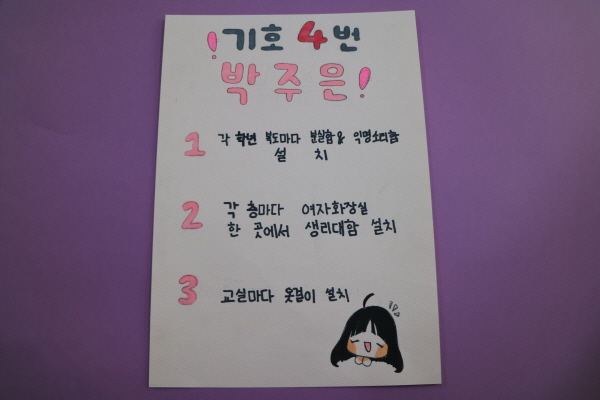 !기호 4번
박주은!
1 각 학년 복도마다 분실함 & 익명소리함
설 치
2 각 층마다 여자화장실
한 곳에서 생리대함 설치
3 교실마다 옷걸이 설치